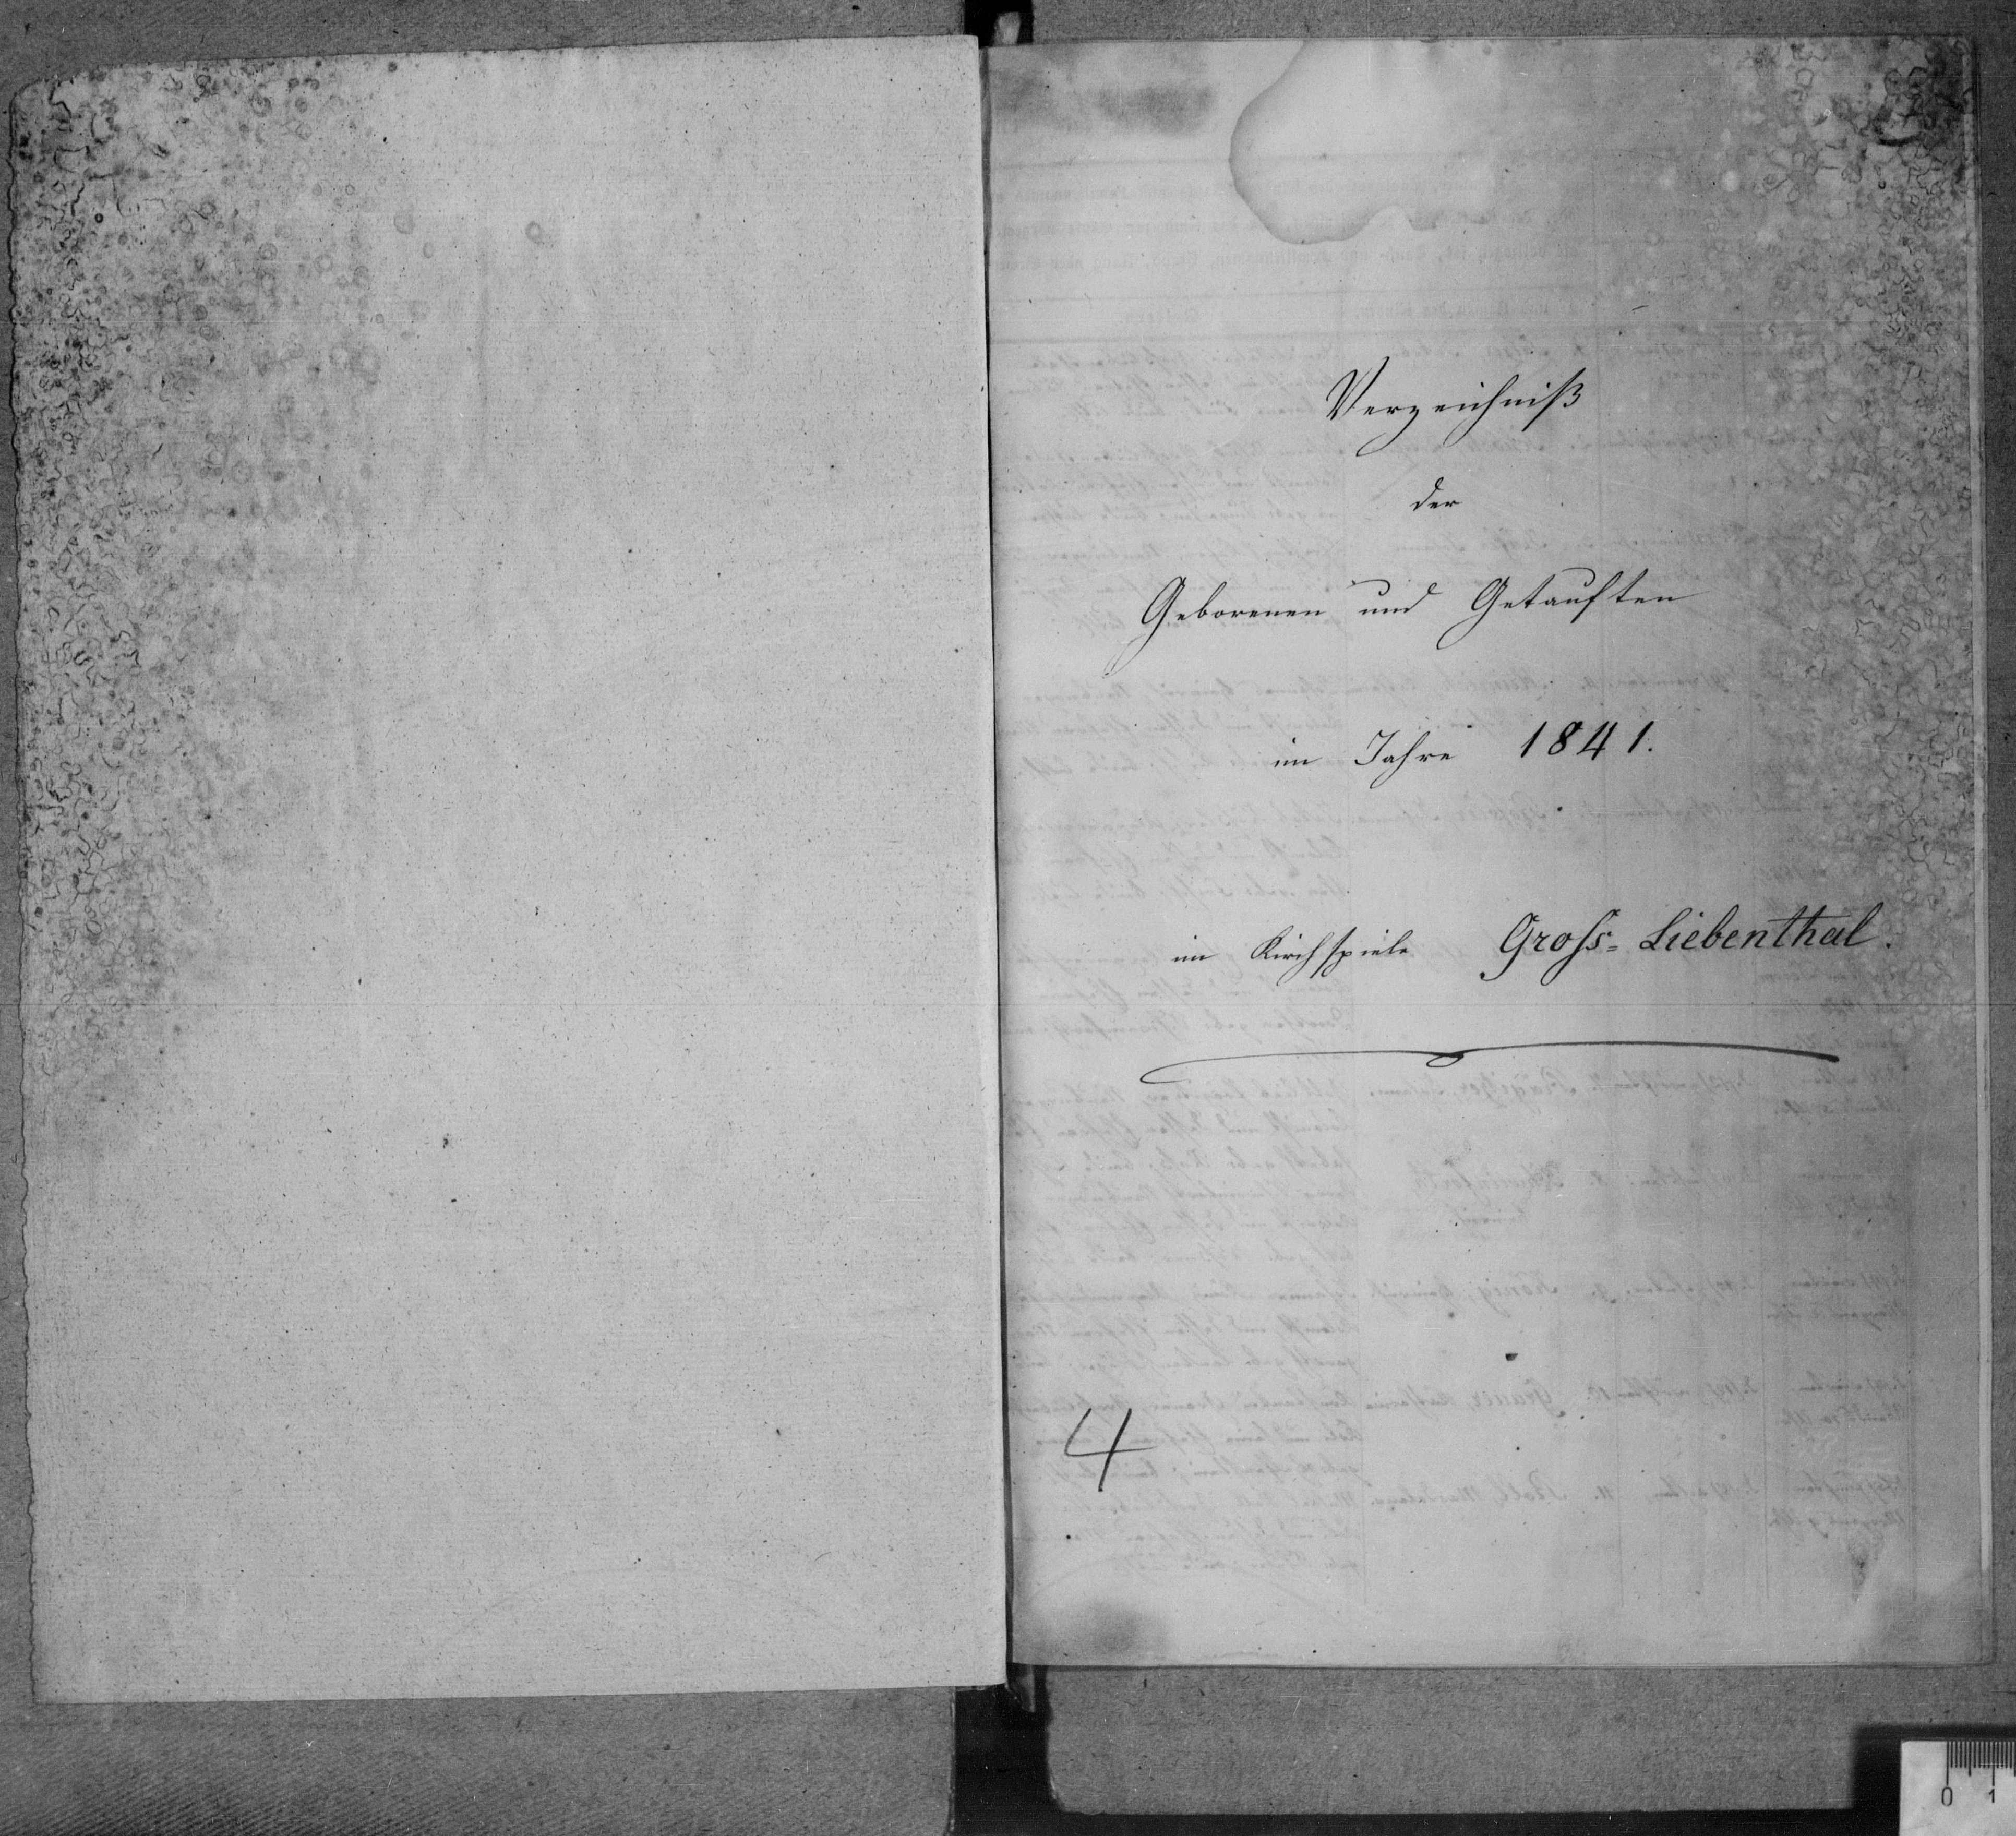 Verzeichniß
der
Geborenen und Getauften
im Jahre 1841.
im Kirchspiele Gross-Liebenthal.
4
0 1